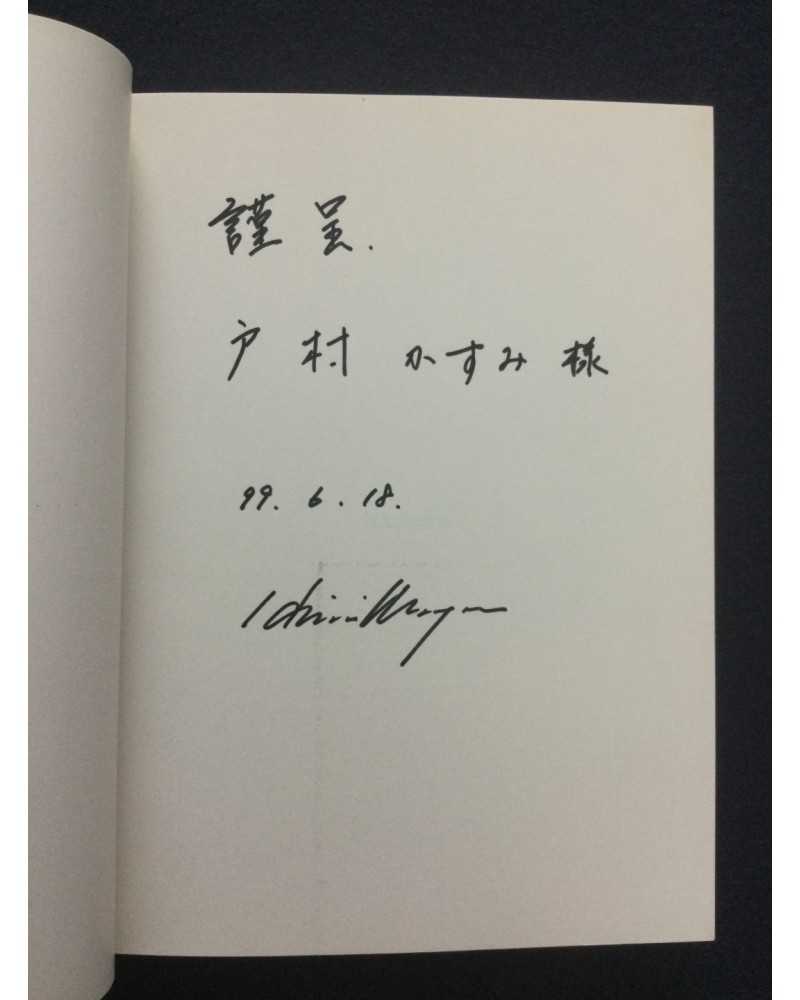 謹呈.
戸村 かすみ 様
99. 6. 18.